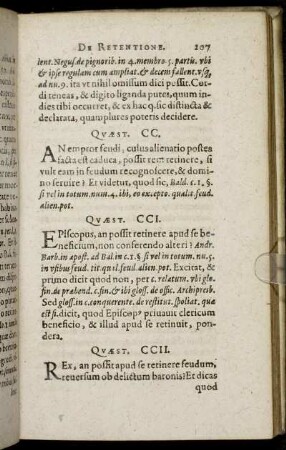 DE RETENTIONE. 207
lent. Negus. de pignorib. in 4. membro. 5. partis. vbi
& ipse regulam cum ampliat. & decem fallent. vsq;
ad nu. 9. ita vt nihil omissum dici possit. Cor
di teneas, & digito liganda putes, quum in-
dies tibi occurret, & ex hac q. sic distincta &
declarata, quamplures poteris decidere.
QVÆST. CC.
AN emptor fendi, cuius alienatio postea
facta est caduca, possit rem retinere, si
vult eam in feudum recognoscere, & domi-
no seruire? Et videtur, quod sic, Bald. c. 1. §.
si vel in totum. num. 4. ibi, eo excepto. qualit. feud.
alien. pot.
QVÆST. CCI.
EPiscopus, an possit retinere apud se be-
neficium, non conferendo alteri? Andr.
Barb. in apost. ad Bal. in c. 1. § si vel in totum. nu. 5.
in vsibus feud. tit. qual. feud. alien. pot. Excitat, &
primo dicit quod non, per c. relatum. vbi glos-
sin. de præbend. c. fin. & ibi gloss. de offic. Archipresb.
Sed gloss. in c. conquerente. de restitut. spoliat. quæ
est si. dicit, quod Episcop9 priuauit clericum
beneficio, & illud apud se retinuit, pon-
dera.
QVÆST. CCII.
REx, an possit apud se retinere feudum,
reuersum ob delictum baronis? Et dicas
quod